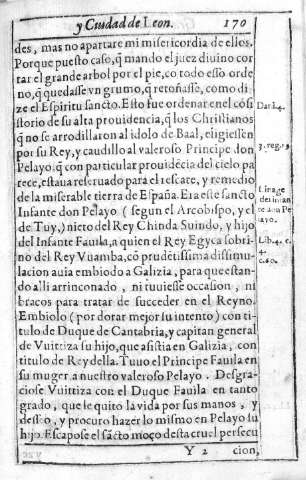 y Ciudad de Leon. 170
des, mas no apartare mi misericordia de ellos.
Porque puesto caso, q̃ mando el juez diuino cor
tar el grande arbol por el pie, co todo esso orde
no, q̃ quedasse vn grumo, q̃ retoñasse, como di
ze el Espiritu sancto. Esto fue ordenar en el cõsi
storio de su alta prouidencia, q̃ los Christianos
q̃ no se arrodillaron al idolo de Baal, eligiessen
por su Rey, y caudillo al valeroso Principe don
Pelayo: q̃ con particular prouidẽcia del cielo pa
rece, estaua reseruado para el rescate, y remedio
de la miserable tierra de España. Era este sancto
Infante don Pelayo (segun el Arcobispo, y el
de Tuy,) nieto del Rey Chinda Suindo, y hijo
del Infante Fauila, a quien el Rey Egyca sobri
no del Rey Vuamba, cõ prudẽtissima dissimu-
lacion auia embiodo a Galizia, para que estan-
do alli arrinconado, ni tuuiesse occasion, ni
bracos para tratar de succeder en el Reyno.
Embiolo (por dorar mejor su intento) con ti-
tulo de Duque de Cantabria, y capitan general
de Vuittiza su hijo, que asistia en Galizia, con
titulo de Rey della. Tuuo el Principe Fauila en
su muger a nuestro valeroso Pelayo. Desgra-
ciose Vuittiza con el Duque Fauila en tanto
grado, que le quito la vida por sus manos, y
desseo, y procuro hazer lo mismo en Pelayo su
hijo. Escapose el sãcto moço desta cruel persecu
Y 2 cion,
Dan. 4.
3. reg. 19
Linage
del infan
te don Pe
layo.
Lib. 4. c.
4.
c. 60.